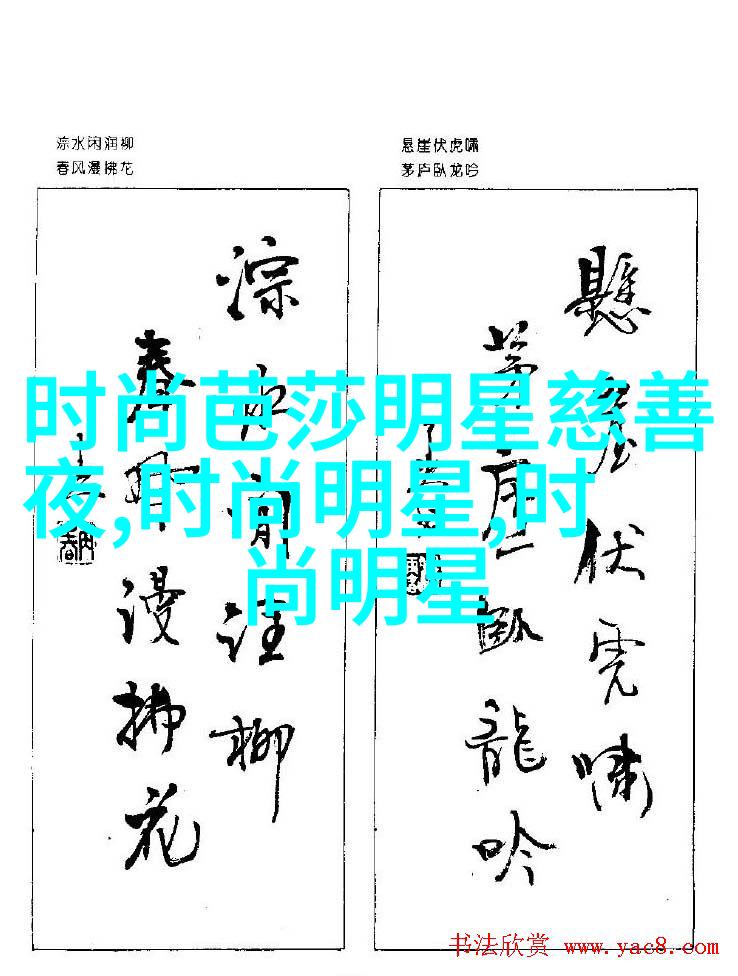 淙水闲润柳
春风漫拂花
悬崖伏虎啸
茅庐卧龙吟
淙水閒润柳
春风漫拂花
懸崖伏虎啸
茅庐卧龍吟
时尚芭莎明星慈善
夜,时尚明星,时
尚明星
书法欣赏 www.yac8.com